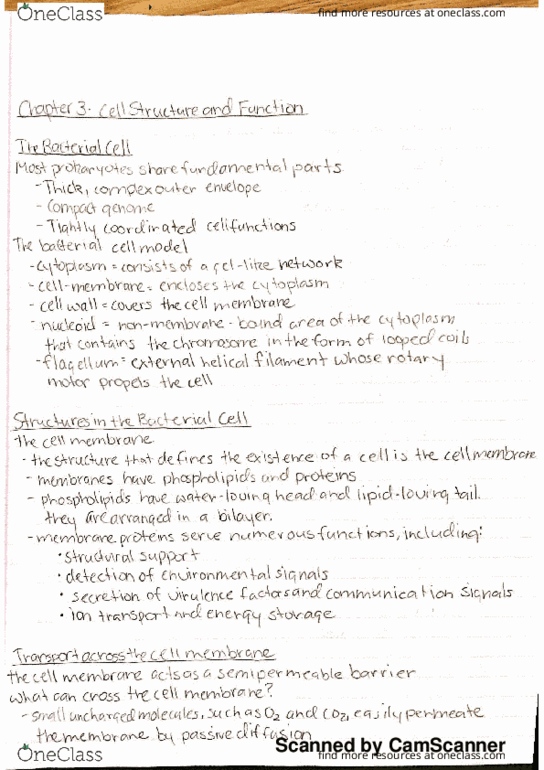 OneClass
find more resources at oneclass.com
Chapter 3- Cell Structure and Function
The Bacterial Cell
Most prokaryotes share fundamental parts
- Thick, complex outer envelope
- Compact genome
- Tightly coordinated cell functions
The bacterial cell model
- cytoplasm = consists of a gel-like network
- cell-membrane = encloses the cytoplasm
- cell wall = covers the cell membrane
- nucleoid = non-membrane-bound area of the cytoplasm
that contains the chromosome in the form of looped coils
- flagellum = external helical filament whose rotary
motor propels the cell
Structures in the Bacterial Cell
The cell membrane
- the structure that defines the existence of a cell is the cell membrane
- membranes have phospholipids and proteins
- phospholipids have water-loving head and lipid-loving tail.
they are arranged in a bilayer.
- membrane proteins serve numerous functions, including:
• structural support
• detection of environmental signals
• secretion of virulence factors and communication signals
• ion transport and energy storage
Transport across the cell membrane
the cell membrane acts as a semipermeable barrier
what can cross the cell membrane?
- small uncharged molecules, such as O2 and CO2, easily permeate
the membrane by passive diffusion
Scanned by CamScanner
OneClass
find more resources at oneclass.com